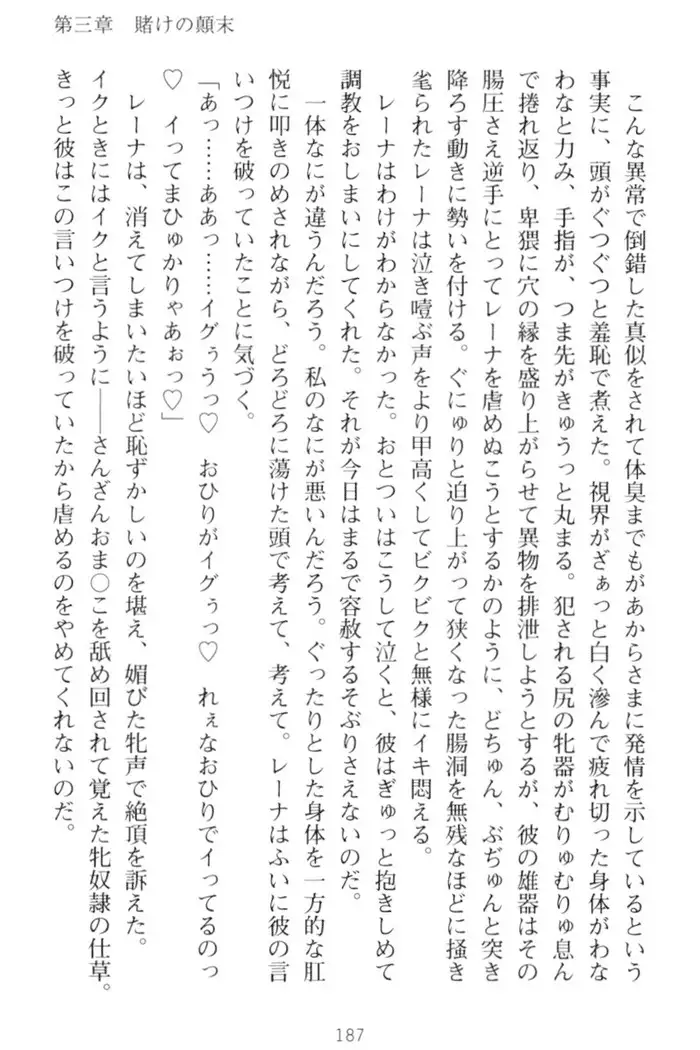 第三章　賭けの顛末
　こんな異常で倒錯した真似をされて体臭までもがあからさまに発情を示しているという
事実に、頭がぐつぐつと羞恥で煮えた。視界がざぁっと白く滲んで疲れ切った身体がわな
わなと力み、手指が、つま先がきゅうっと丸まる。犯される尻の牝器がむりゅむりゅ息ん
で捲れ返り、卑猥に穴の縁を盛り上がらせて異物を排泄しようとするが、彼の雄器はその
腸圧さえ逆手にとってレーナを虐めぬこうとするかのように、どちゅん、ぶぢゅんと突き
降ろす動きに勢いを付ける。ぐにゅりと迫り上がって狭くなった腸洞を無残なほどに掻き
毟られたレーナは泣き噎ぶ声をより甲高くしてビクビクと無様にイキ悶える。
　レーナはわけがわからなかった。おとついはこうして泣くと、彼はぎゅっと抱きしめて
調教をおしまいにしてくれた。それが今日はまるで容赦するそぶりさえないのだ。
　一体なにが違うんだろう。私のなにが悪いんだろう。ぐったりとした身体を一方的な肛
悦に叩きのめされながら、どろどろに蕩けた頭で考えて、考えて。レーナはふいに彼の言
いつけを破っていたことに気づく。
「あっ……ああっ……イグぅうっ♡　おひりがイグぅっ♡　れぇなおひりでイってるのっ
♡　イってまひゅかりゃあぉっ♡」
　レーナは、消えてしまいたいほど恥ずかしいのを堪え、媚びた牝声で絶頂を訴えた。
イクときにはイクと言うように――さんざんおま〇こを舐め回されて覚えた牝奴隷の仕草。
きっと彼はこの言いつけを破っていたから虐めるのをやめてくれないのだ。
187